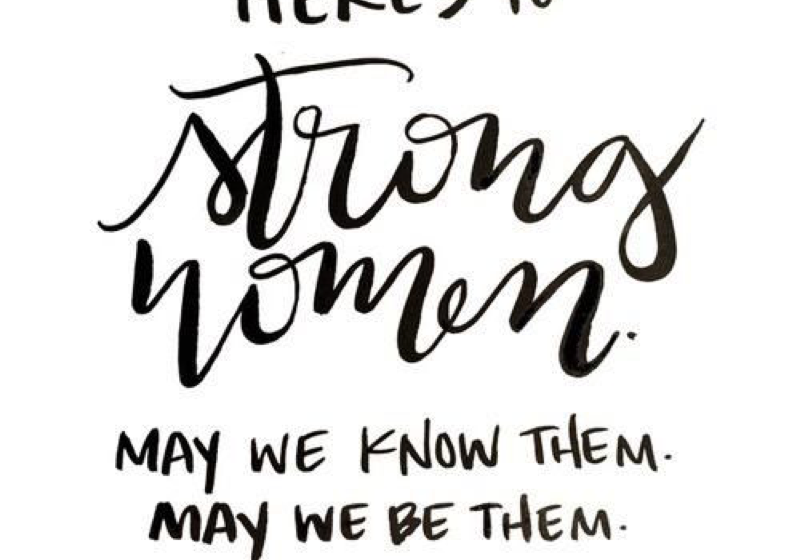 HERE'S TO
strong
women.
MAY WE KNOW THEM.
MAY WE BE THEM.